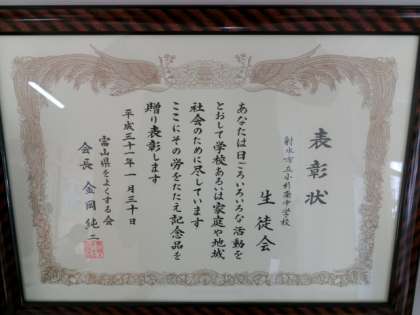 表彰状
射水市立小杉南中学校
生徒会
あなたは日ごろいろいろな活動を
とおして学校あるいは家庭や地域
社会のために尽しています
ここにその労をたたえ記念品を
贈り表彰します
平成三十一年一月三十日
富山県をよくする会
会長 金岡純二